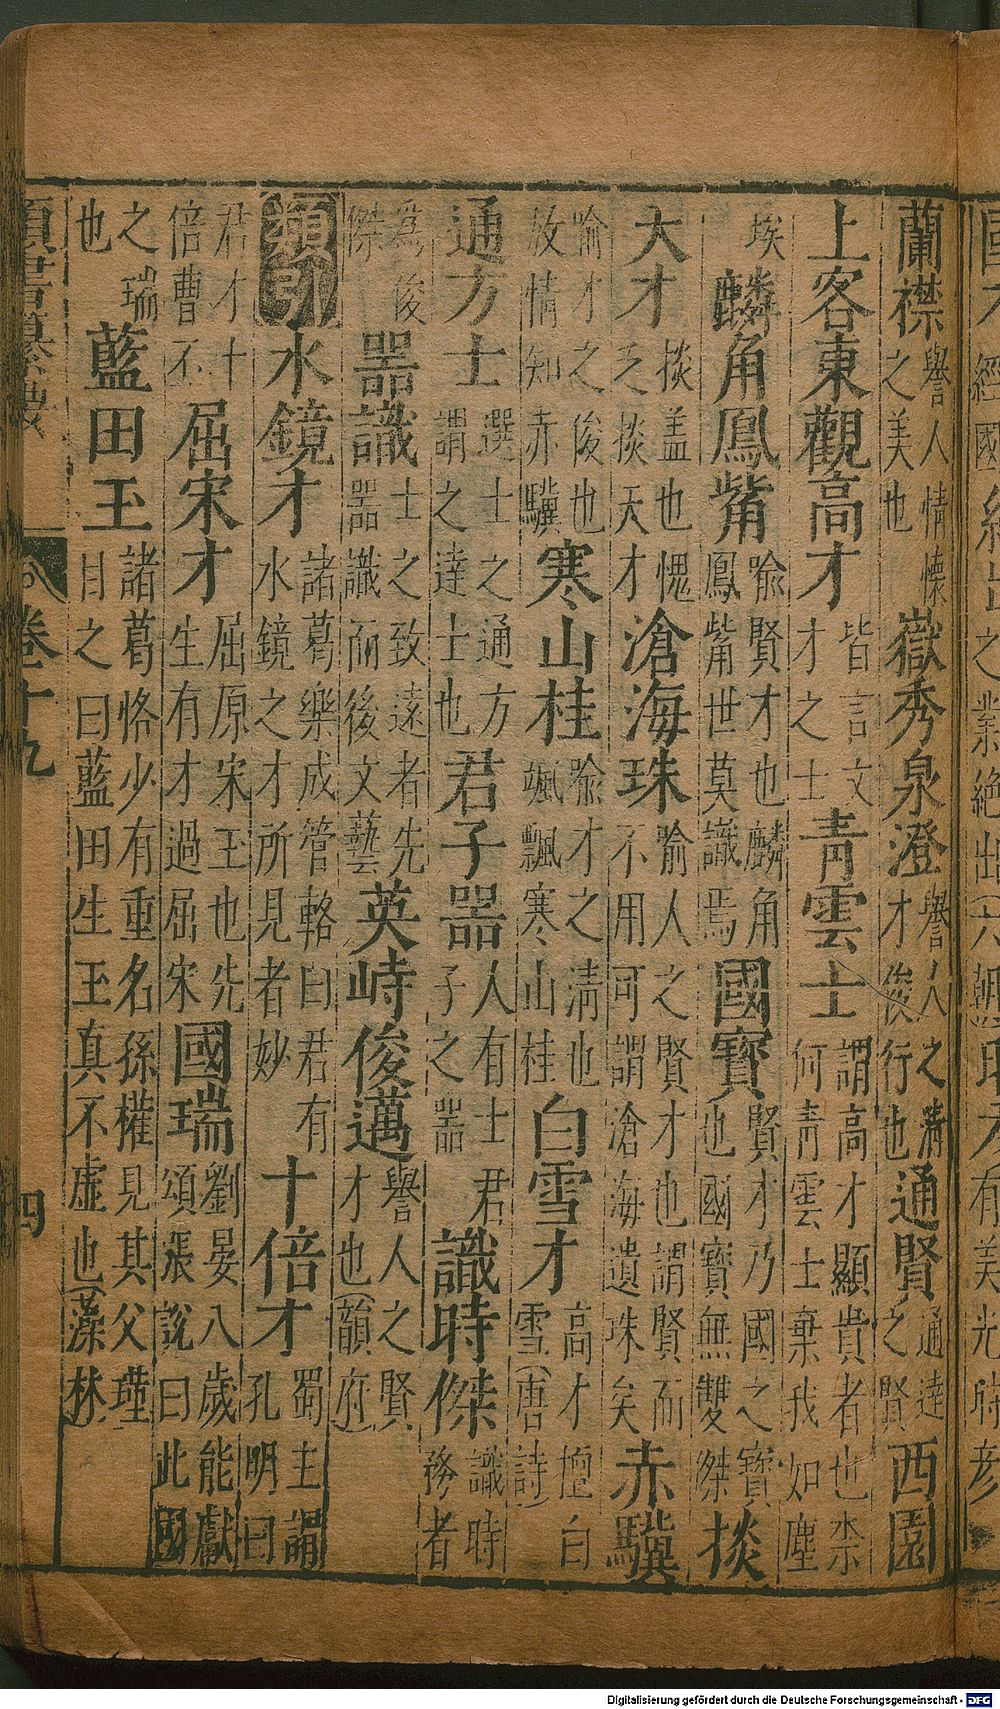 蘭襟譽人情懷之美也嶽秀泉澄譽人之清才俊行也通賢通達之賢西園
上客東觀高才皆言文才之士青雲士謂高才顯貴者也柰何青雲士棄我如塵
埃麟角鳳觜喻賢才也麟角鳳觜世莫識焉國寶賢才乃國之寶也國寶無雙傑掞
大才掞盖也愧乏掞天才滄海珠喻人之賢才也謂賢而不用可謂滄海遺珠矣赤驥
喻才之俊也放情知赤驥寒山桂喻才之清也颯飄寒山桂白雪才高才擅白雪(唐詩)
通方士選士之通方謂之達士也君子器人有士君子之器識時傑識時務者
為俊傑器識士之致遠者先器識而後文藝英峙俊邁譽人之賢才也(韻府)
類印水鏡才諸葛樂成管輅曰君有水鏡之才所見者妙十倍才蜀主謂孔明曰
君才十倍曹丕屈宋才屈原宋玉也先生有才過屈宋國瑞劉晏八歲能獻頌張說曰此國
之瑞也藍田玉諸葛恪少有重名孫權見其父瑾目之曰藍田生玉真不虛也(藻林)
類書纂要 卷十九 四
Digitalisierung gefördert durch die Deutsche Forschungsgemeinschaft - DFG